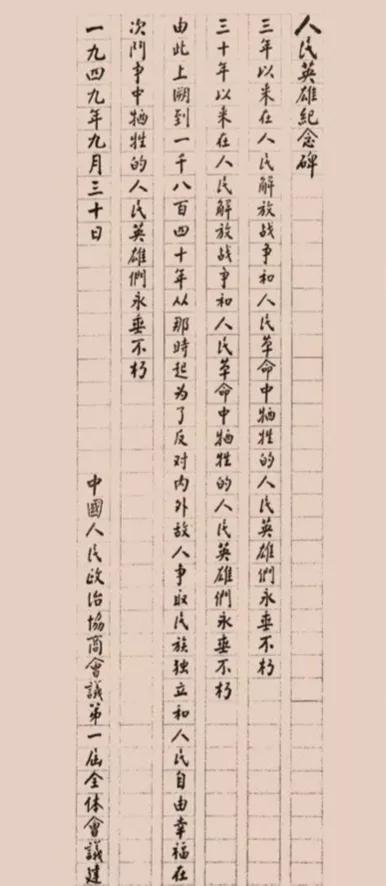 人民英雄紀念碑
三年以来在人民解放战争和人民革命中牺牲的人民英雄們永垂不朽
三十年以来在人民解放战争和人民革命中牺牲的人民英雄們永垂不朽
由此上溯到一千八百四十年从那時起为了反对内外敌人争取民族独立和人民自由幸福在
次鬥争中牺牲的人民英雄們永垂不朽
一九四九年九月三十日 中國人民政治協商會議第一届全体會議建